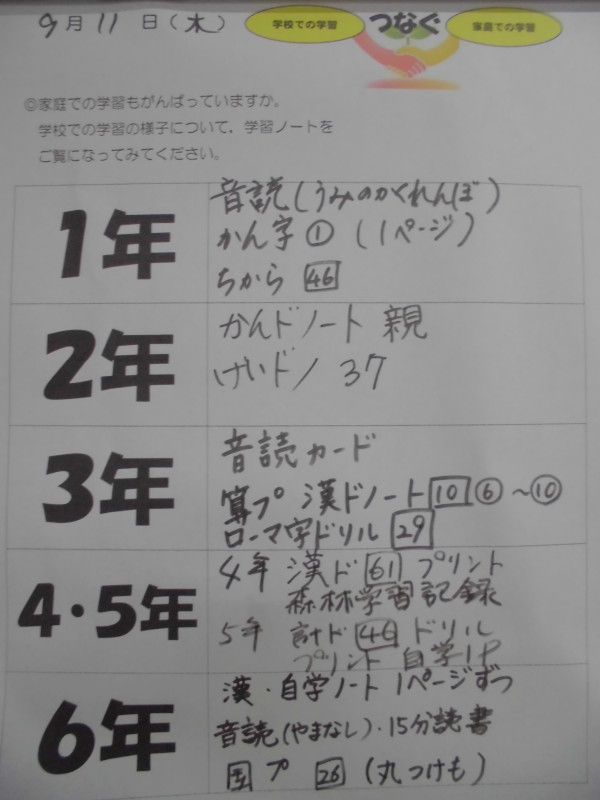 9月11日(木)
学校での学習 つなぐ 家庭での学習
◎家庭での学習もがんばっていますか。
学校での学習の様子について、学習ノートを
ご覧になってみてください。
1年
音読(うみのかくれんぼ)
かん字① (1ページ)
ちから 46
2年
かんドノート 親
けいドノ 37
3年
音読カード
算プ 漢ドノート 10 ⑥~⑩
ローマ字ドリル 29
4・5年
4年 漢ド 61 プリント
森林学習記録
5年 計ド 46 ドリル
プリント 自学1P
6年
漢・自学ノート 1ページずつ
音読(やまなし)・15分読書
国プ 26 (丸つけも)